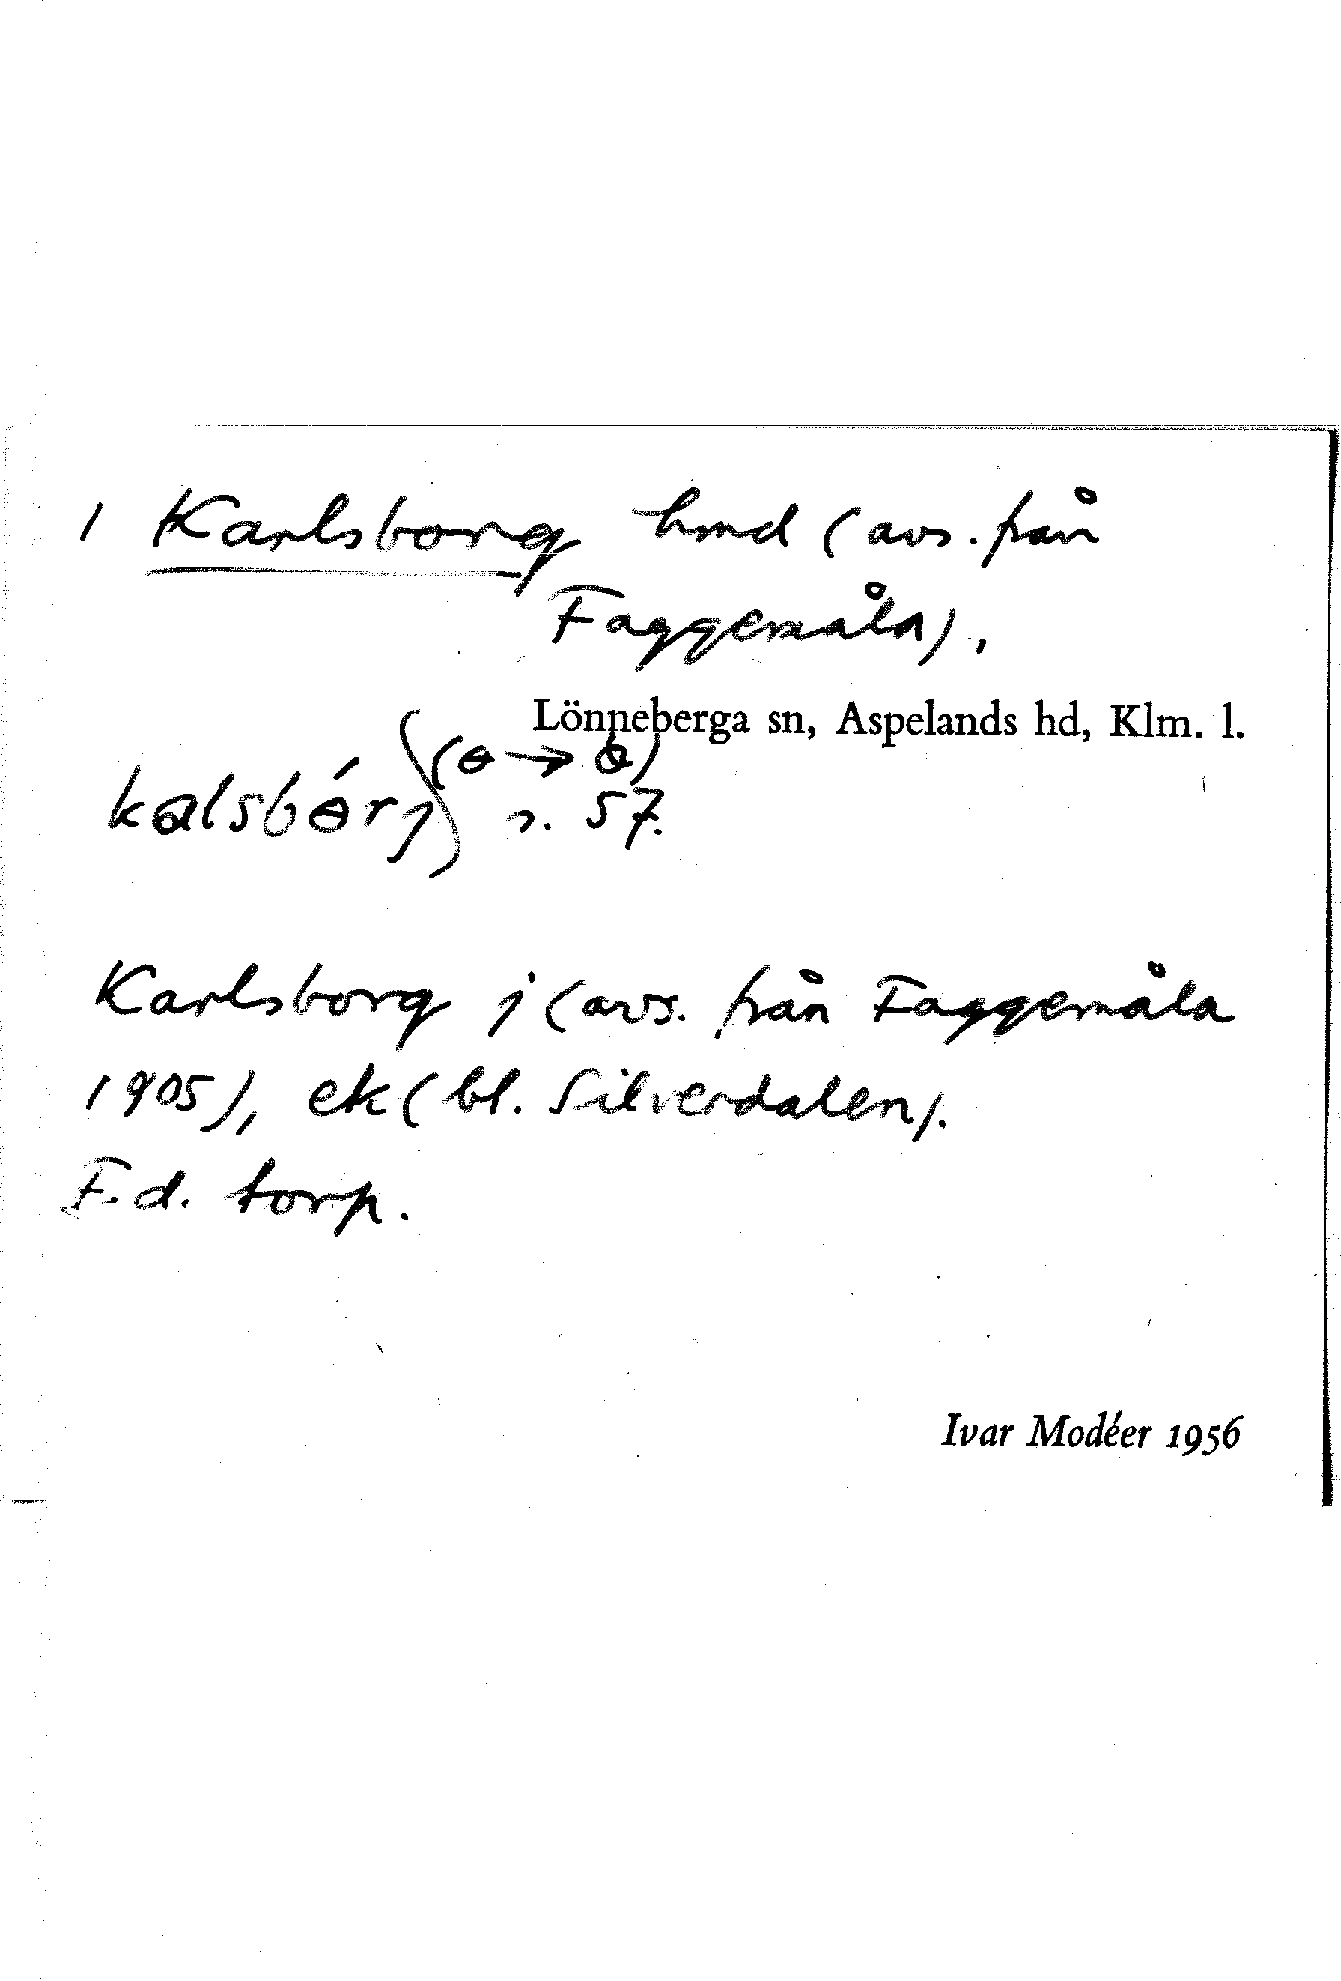 1 Karlsborg hmd (avs. från
Faggemåla).
Lönneberga sn, Aspelands hd, Klm. l.
(ɵ → ɵ̀)
kalsbɵ́rj) s. 57.
Karlsborg j (avs. från Faggemåla
1905), ek (bl. Silverdalen).
F.d. torp.
Ivar Modéer 1956